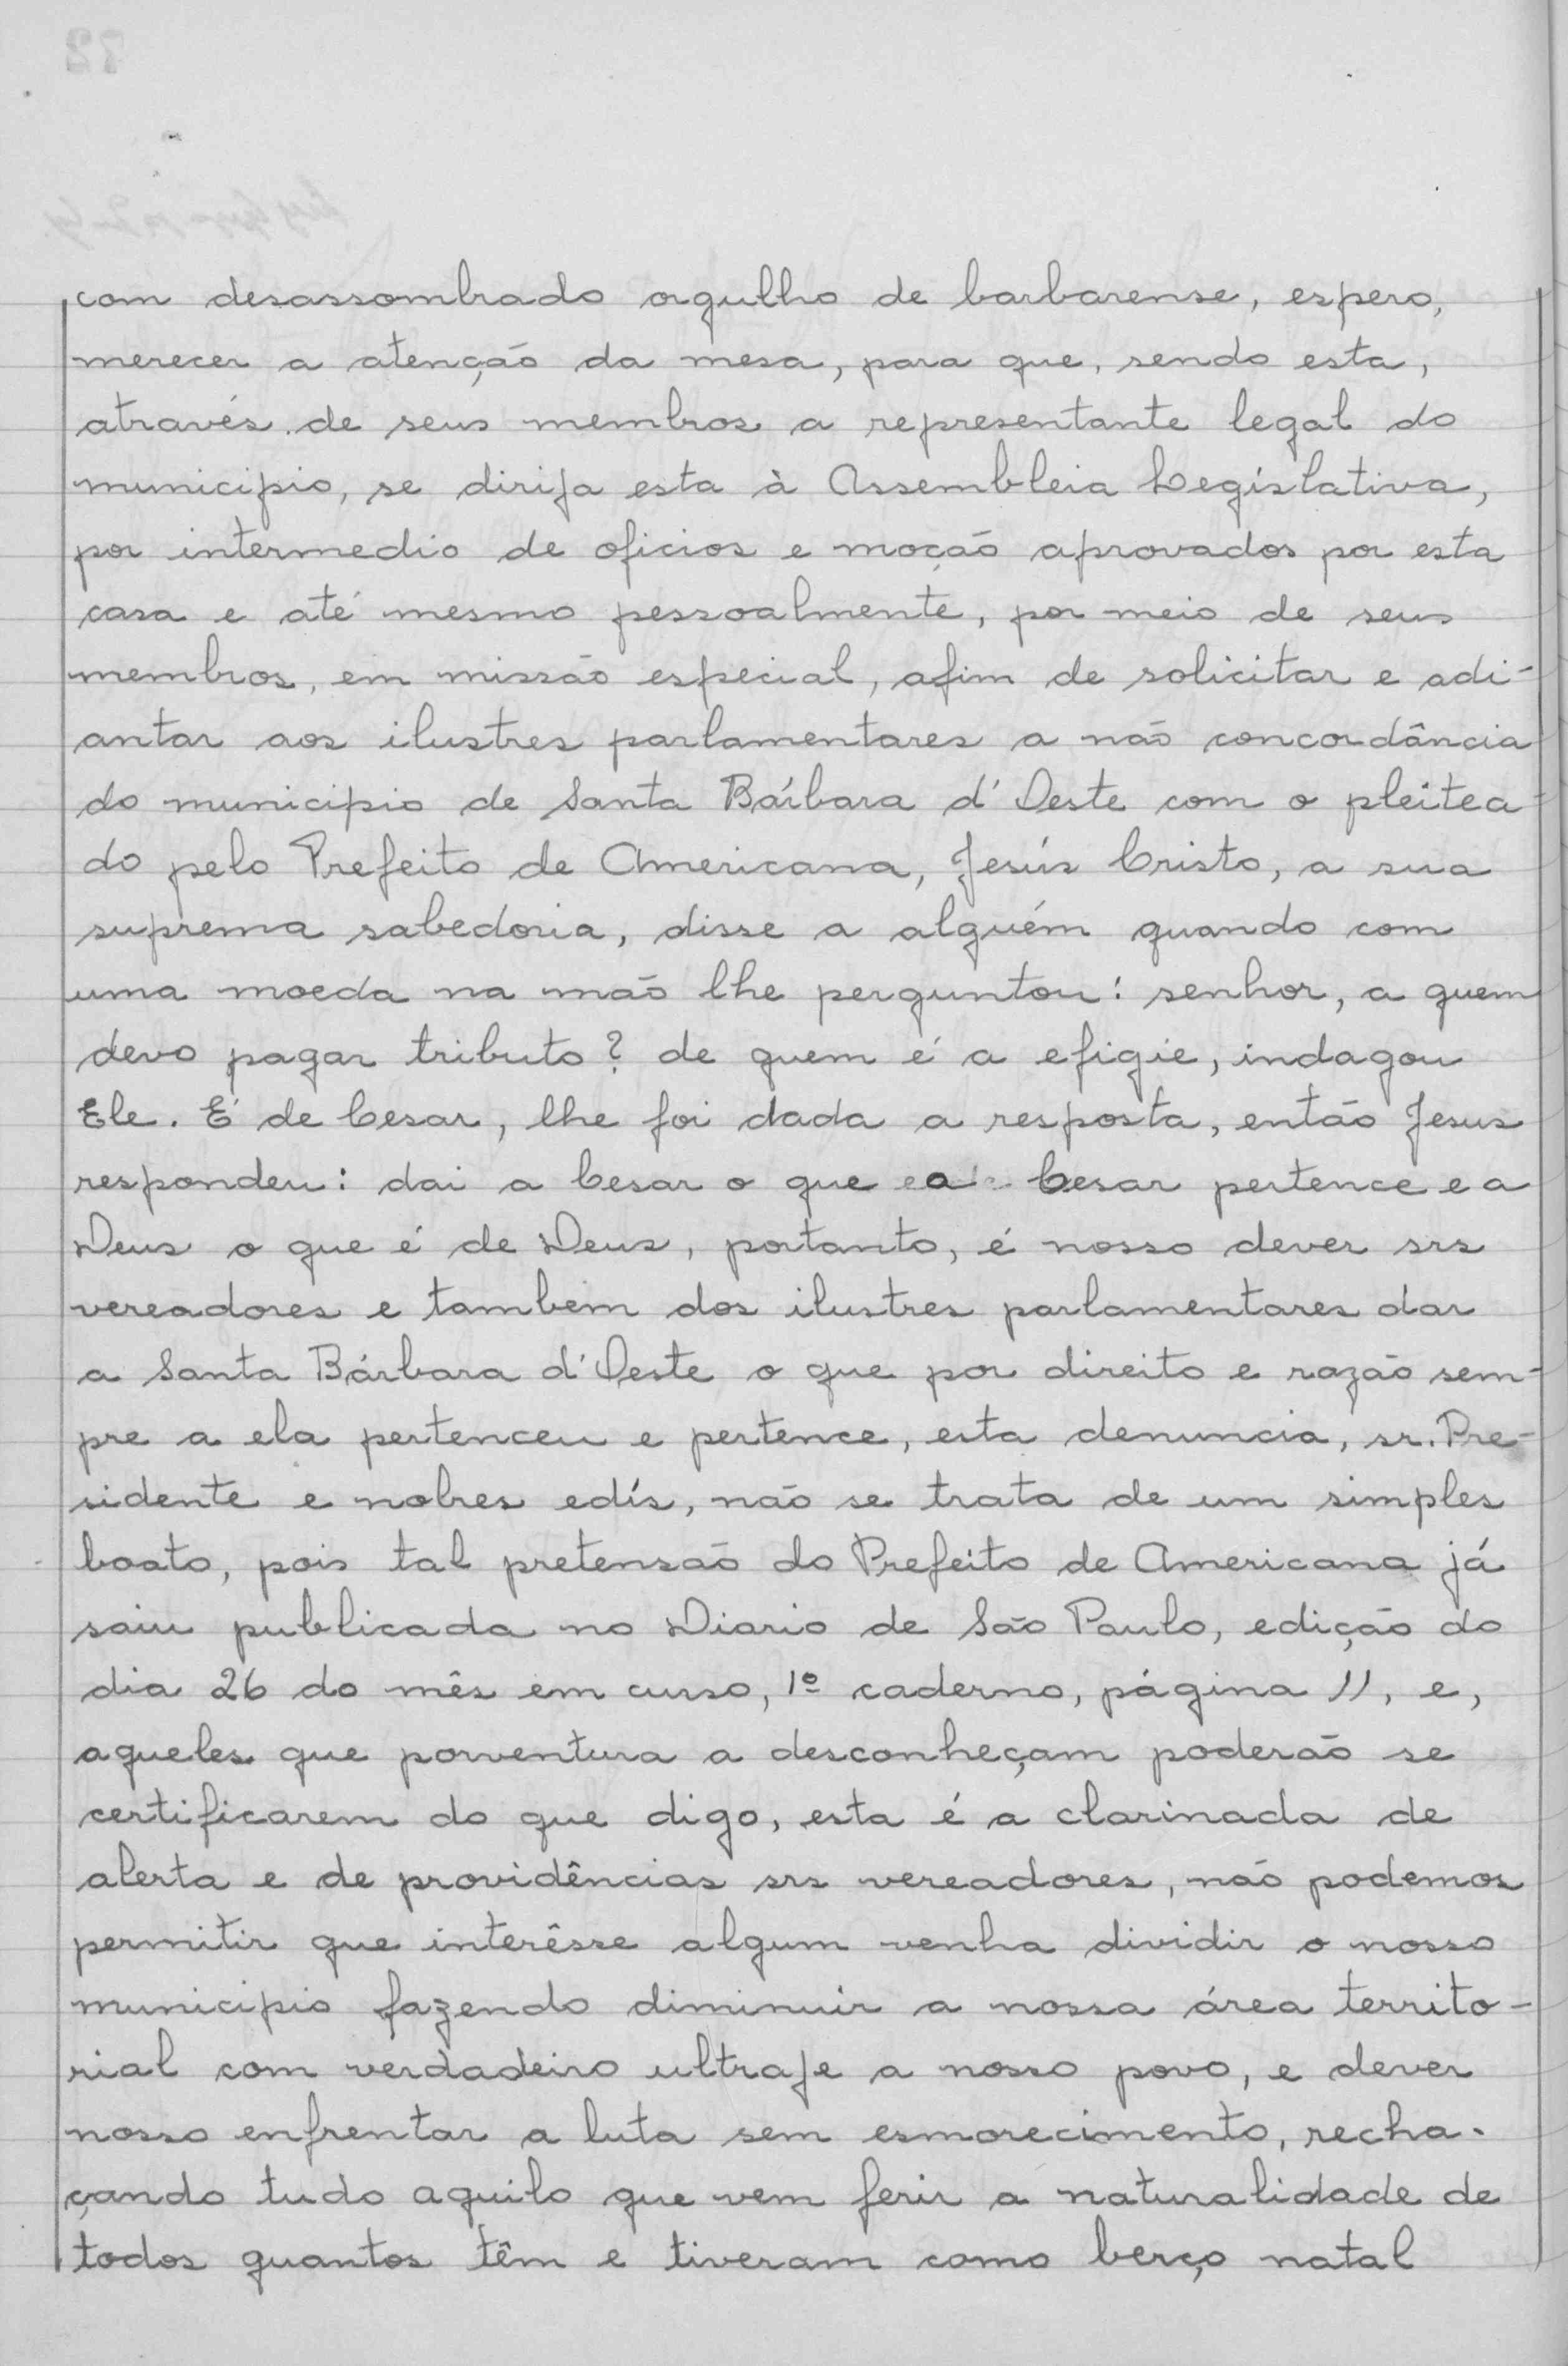 com desassombrado orgulho de barbarense, espero,
merecer a atenção da mesa, para que, sendo esta,
através de seus membros a representante legal do
municipio, se dirija esta à Assembleia Legislativa,
por intermedio de oficios e moção aprovados por esta
casa e até mesmo pessoalmente, por meio de seus
membros, em missão especial, afim de solicitar e adi-
antar aos ilustres parlamentares a não concordância
do municipio de Santa Bárbara d'Oeste com o pleitea-
do pelo Prefeito de Americana, Jesús Cristo, a sua
suprema sabedoria, disse a alguém quando com
uma moeda na mão lhe perguntou: senhor, a quem
devo pagar tributo? de quem é a efigie, indagou
Ele. É de Cesar, lhe foi dada a resposta, então Jesus
respondeu: dai a Cesar o que a Cesar pertence e a
Deus o que é de Deus, portanto, é nosso dever srs
vereadores e tambem dos ilustres parlamentares dar
a Santa Bárbara d'Oeste o que por direito e razão sem-
pre a ela pertenceu e pertence, esta denuncia, sr. Pre-
sidente e nobres edís, não se trata de um simples
boato, pois tal pretensão do Prefeito de Americana já
saiu publicada no Diario de São Paulo, edição do
dia 26 do mês em curso, 1º caderno, página 11, e,
aqueles que porventura a desconheçam poderão se
certificarem do que digo, esta é a clarinada de
alerta e de providências srs vereadores, não podemos
permitir que interêsse algum venha dividir o nosso
municipio fazendo diminuir a nossa área territo-
rial com verdadeiro ultraje a nosso povo, e dever
nosso enfrentar a luta sem esmorecimento, recha-
çando tudo aquilo que vem ferir a naturalidade de
todos quantos têm e tiveram como berço natal